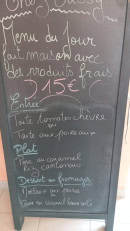 Menu du Jour
fait maison avec
des produits frais
215€
Entrée
Tarte tomate chèvre
ou
Tarte aux poireaux
Plat
Porc au caramel
Riz cantonais
Dessert ou fromages